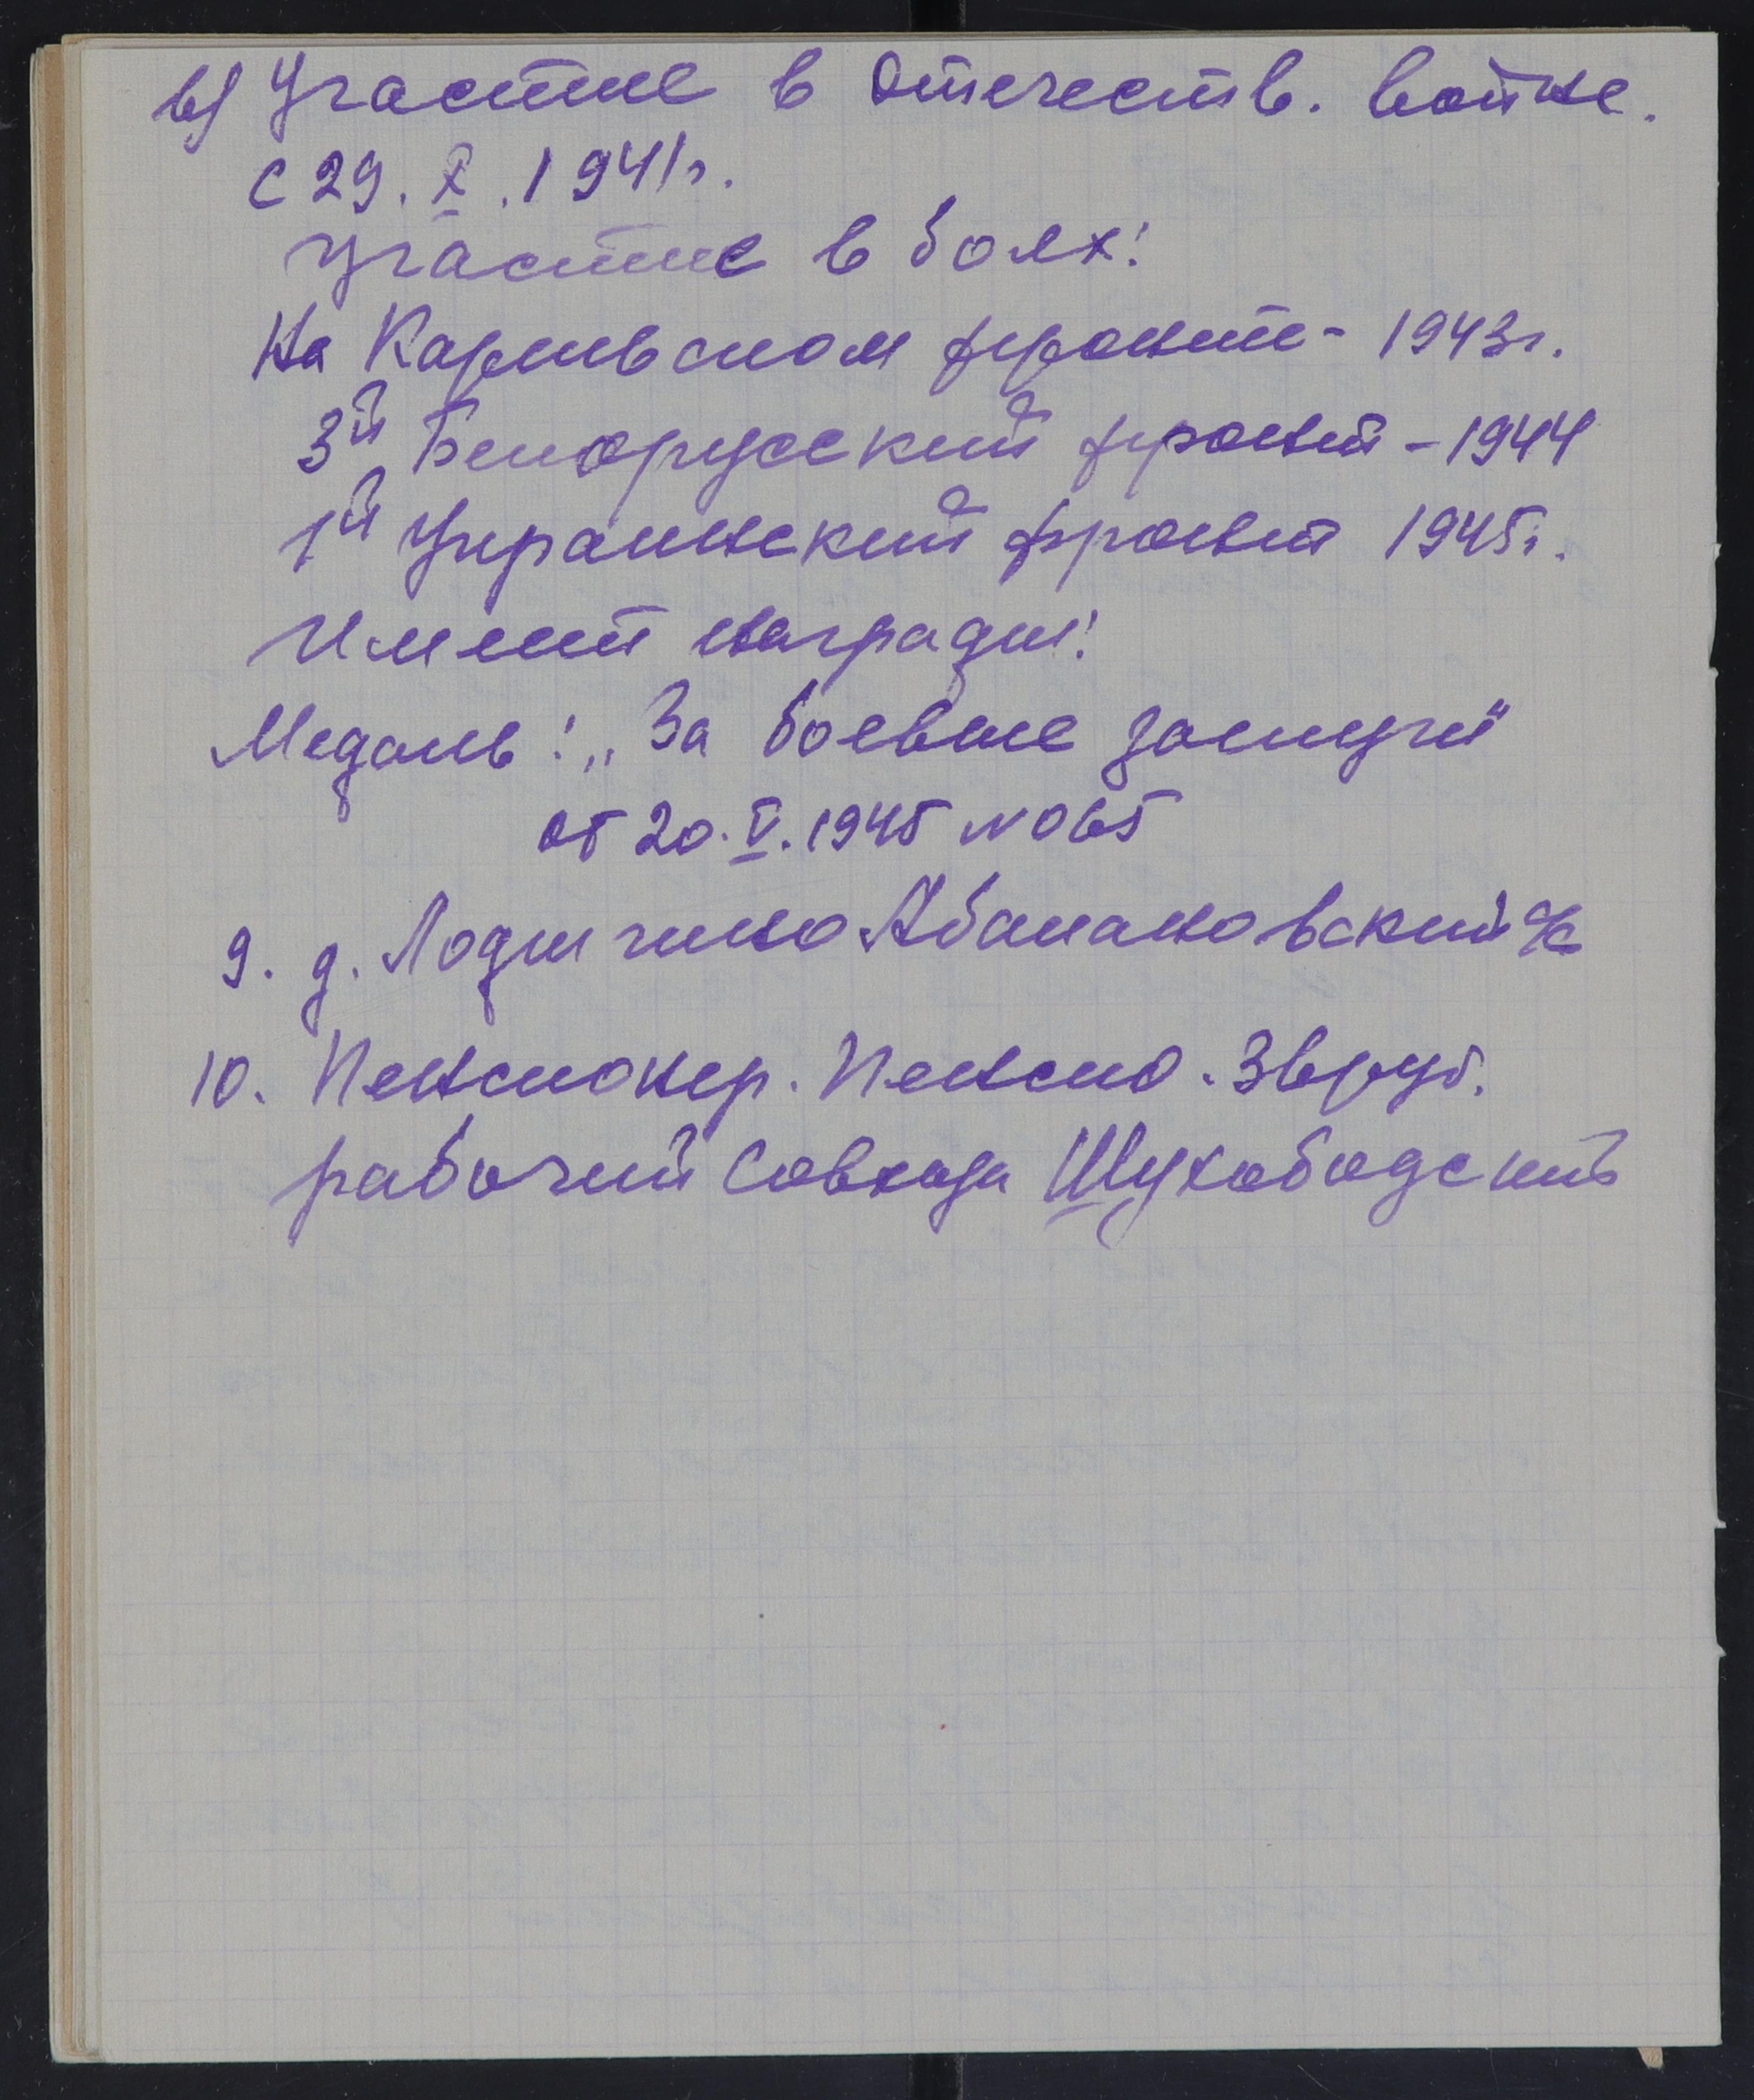 в) Участие в Отечеств. войне.
с 29. X. 1941г.
Участие в боях:
На Карельском фронте - 1943г.
3й Белорусский фронт - 1944
1й Украинский фронт 1945г.
Имеет награды:
Медаль: „За боевые заслуги"
от 20. V. 1945 № 065
9. д. Лодыгино Абакановский с/с
10. Пенсионер. Пенсио. 36 руб.
рабочий совхоза Шухободский